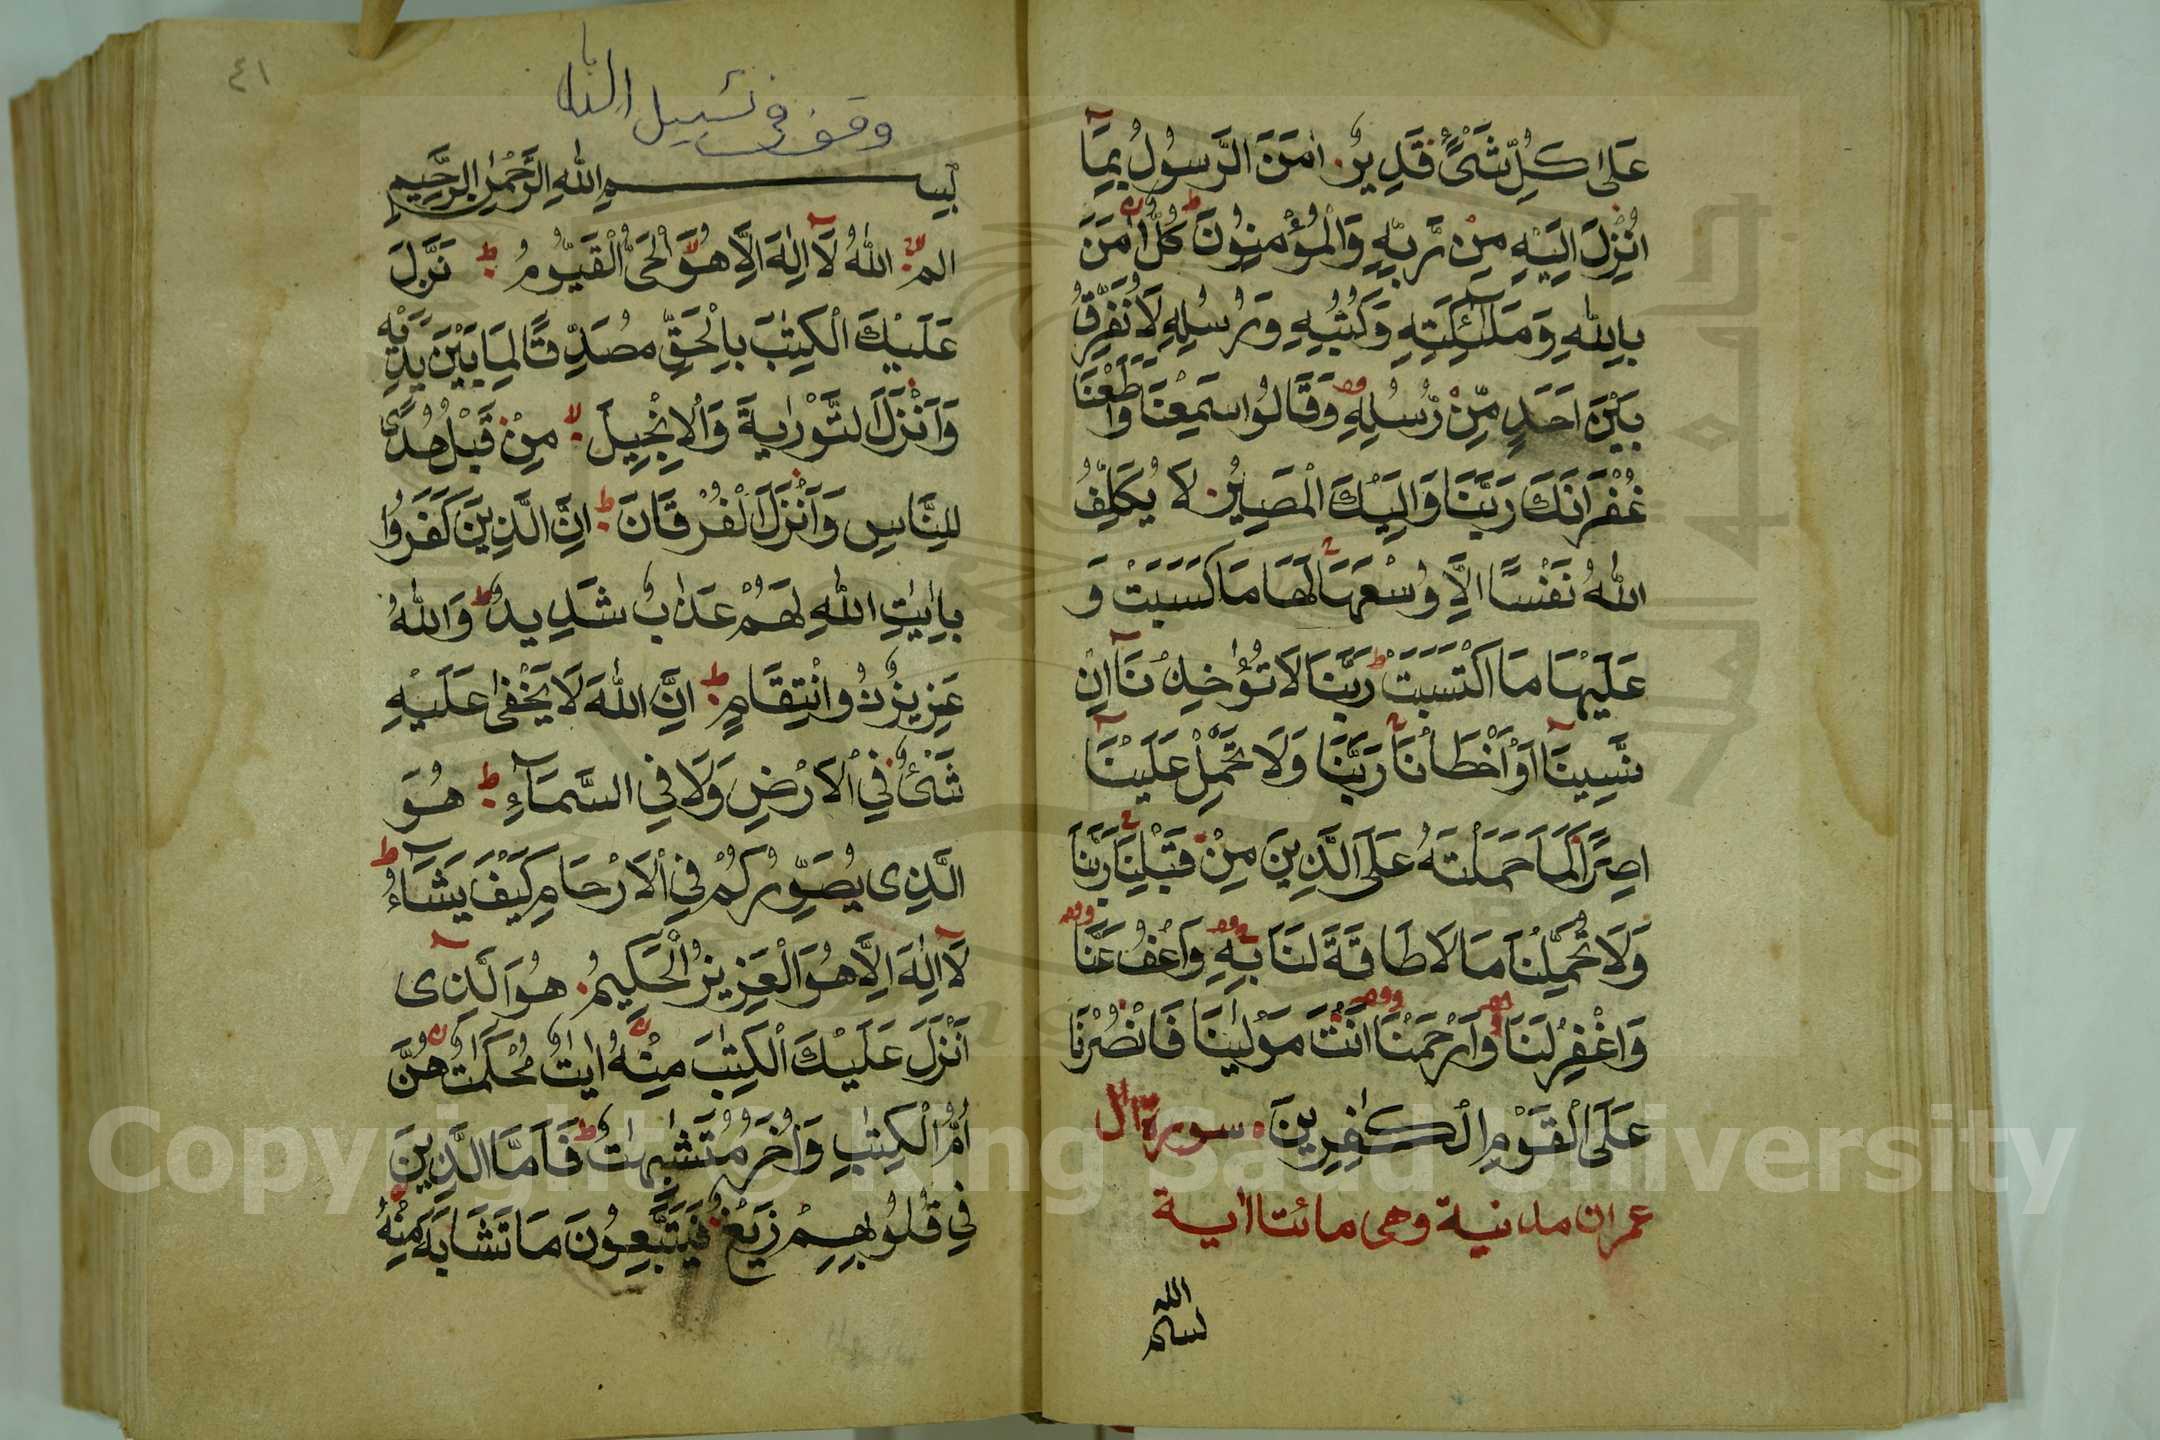 عَلٰى كُلِّ شَىْءٍ قَدِيرٌ اٰمَنَ الرَّسُولُ بِمَآ
اُنْزِلَ اِلَيْهِ مِنْ رَّبِّهٖ وَالْمُؤْمِنُونَ كُلٌّ اٰمَنَ
بِاللّٰهِ وَمَلٰٓئِكَتِهٖ وَكُتُبِهٖ وَرُسُلِهٖ لَا نُفَرِّقُ
بَيْنَ اَحَدٍ مِّنْ رُّسُلِهٖ وَقَالُوا سَمِعْنَا وَاَطَعْنَا
غُفْرَانَكَ رَبَّنَا وَاِلَيْكَ الْمَصِيرُ لَا يُكَلِّفُ
اللّٰهُ نَفْسًا اِلَّا وُسْعَهَا لَهَا مَا كَسَبَتْ وَ
عَلَيْهَا مَا اكْتَسَبَتْ ط رَبَّنَا لَا تُؤَاخِذْ نَآ اِنْ
نَّسِينَآ اَوْ اَخْطَاْنَا رَبَّنَا وَلَا تَحْمِلْ عَلَيْنَآ
اِصْرًا كَمَا حَمَلْتَهُ عَلَى الَّذِينَ مِنْ قَبْلِنَا رَبَّنَا
وَلَا تُحَمِّلْنَا مَا لَا طَاقَةَ لَنَا بِهٖ وَاعْفُ عَنَّا
وَاغْفِرْ لَنَا وَارْحَمْنَا اَنْتَ مَوْلٰينَا فَانْصُرْنَا
عَلَى الْقَوْمِ الْكٰفِرِينَ سورة ال
عمران مدنية وهى مائتا اية
بسم الله
٤١
وقف في سبيل الله
بِسْمِ اللّٰهِ الرَّحْمٰنِ الرَّحِيمِ
الم لا اللّٰهُ لَآ اِلٰهَ اِلَّا هُوَ الْحَىُّ الْقَيُّومُ ط نَزَّلَ
عَلَيْكَ الْكِتٰبَ بِالْحَقِّ مُصَدِّقًا لِمَا بَيْنَ يَدَيْهِ
وَاَنْزَلَ التَّوْرٰيةَ وَالْاِنْجِيلَ لا مِنْ قَبْلُ هُدًى
لِلنَّاسِ وَاَنْزَلَ الْفُرْقَانَ ط اِنَّ الَّذِينَ كَفَرُوا
بِاٰيٰتِ اللّٰهِ لَهُمْ عَذَابٌ شَدِيدٌ ط وَاللّٰهُ
عَزِيزٌ ذُو انْتِقَامٍ ط اِنَّ اللّٰهَ لَا يَخْفٰى عَلَيْهِ
شَىْءٌ فِي الْاَرْضِ وَلَا فِي السَّمَآءِ ط هُوَ
الَّذِى يُصَوِّرُكُمْ فِي الْاَرْحَامِ كَيْفَ يَشَآءُ ط
لَآ اِلٰهَ اِلَّا هُوَ الْعَزِيزُ الْحَكِيمُ هُوَ الَّذِى
اَنْزَلَ عَلَيْكَ الْكِتٰبَ مِنْهُ اٰيٰتٌ مُحْكَمٰتٌ هُنَّ
اُمُّ الْكِتٰبِ وَاُخَرُ مُتَشٰبِهٰتٌ ط فَاَمَّا الَّذِينَ
فِي قُلُوبِهِمْ زَيْغٌ فَيَتَّبِعُونَ مَا تَشَابَهَ مِنْهُ
Copyright © King Saud University